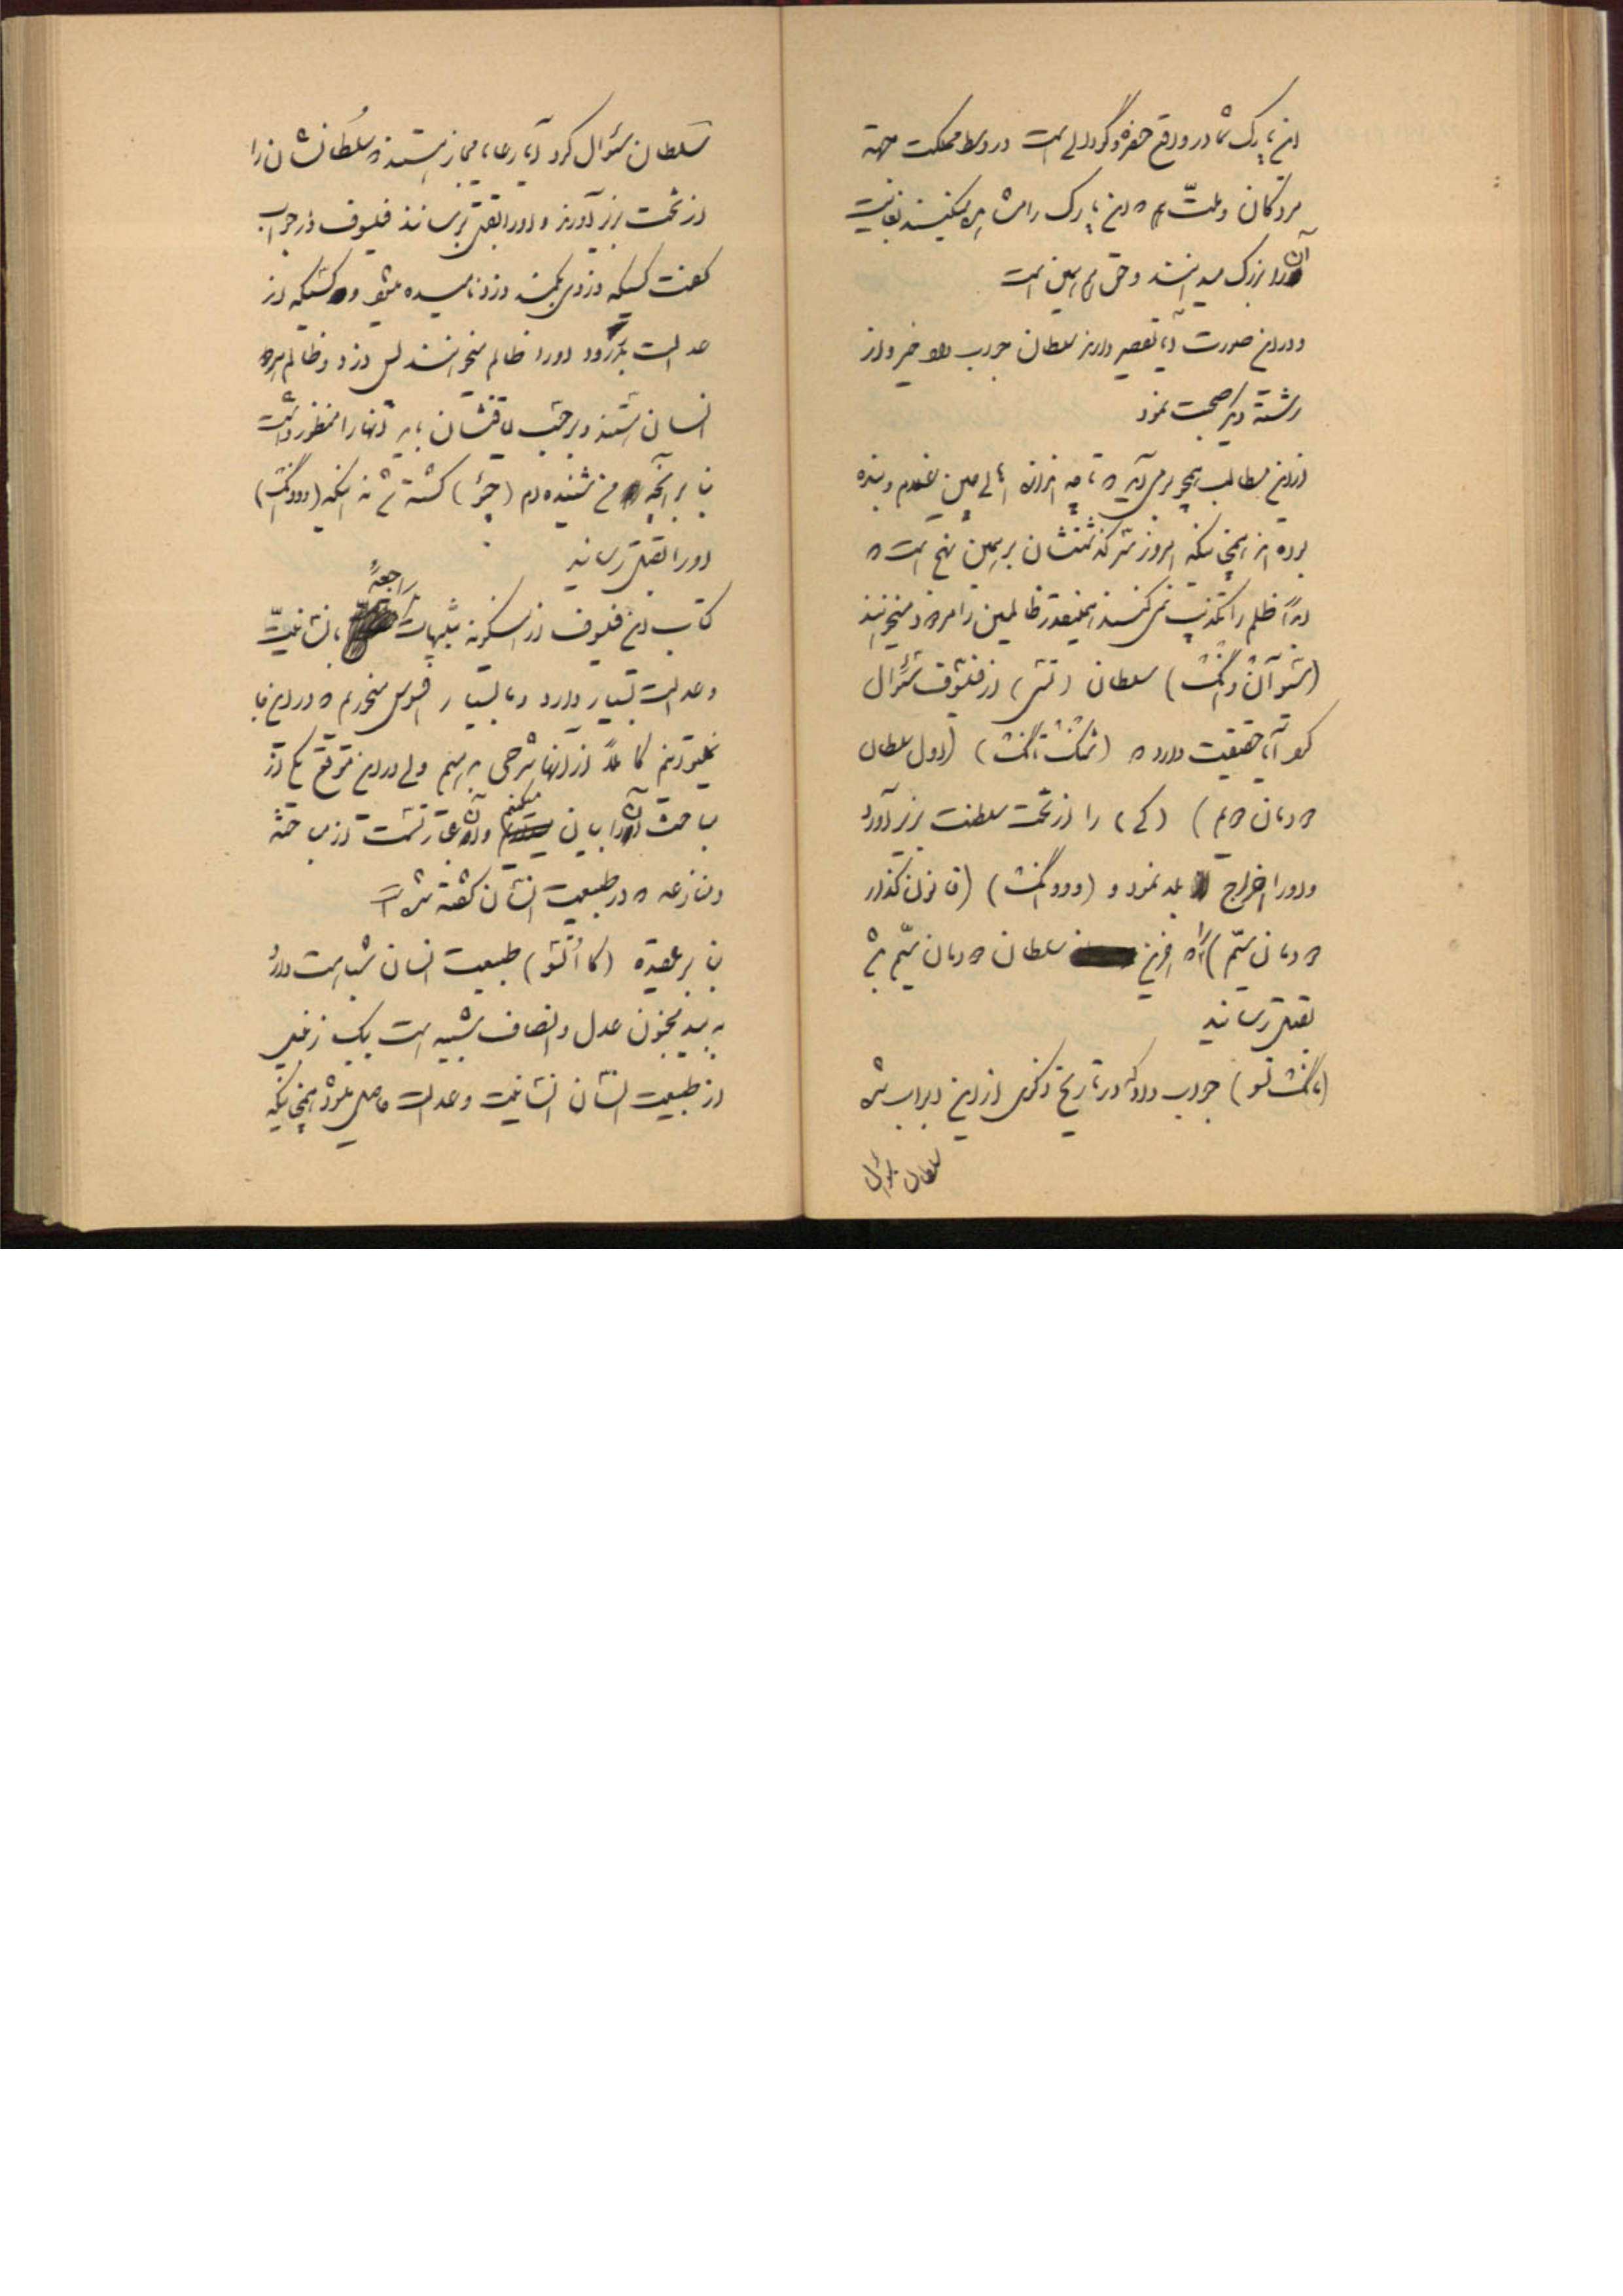 این پارک شما در واقع حفره و گودالی است در وسط مملکت جهة
مردگان و ملت هم که این پارک را مشاهده میکنند بغایت
آن را بزرگ میدانند و حق هم همین است
و در این صورت آیا تقصیر دارند سلطان جواب داد خیر و از
رشته دیگر صحبت نمود
از این مطالب همچو برمی آید که تا چه اندازه اهالی چین مظلوم و بنده
بوده اند همچنانکه امروز سرگذشتشان بر همین نهج است که
ابداً ظلم را تکذیب نمی کنند همینقدر ظالمین را مرد میخوانند
(شو آن وانگ) سلطان (تسی) از فیلسوف سئوال
کرد آیا حقیقت دارد که (شنگ تانگ) (اول سلطان
دودمان دیم) (کی) را از تخت سلطنت بزیر آورد
و او را اخراج بلد نمود و (وو وانگ) (قانون گذار
دودمان سیّم) آخرین سلطان دودمان سیّم
بقتل رسانید
(مانگ تسو) جواب داد که در تاریخ ذکری از این ابواب شده
سلطان سئوال
سلطان سئوال کرد آیا رعایا مجاز هستند که سلطانشان را
از تخت بزیر آورند و او را بقتل برسانند فیلسوف در جواب
گفت کسیکه دزدی بکند دزد نامیده میشود و کسیکه از
عدالت بگذرد او را ظالم میخوانند پس دزد و ظالم هر دو
انسان هستند و بر حسب لیاقتشان باید آنها را منظور داشت
بنا بر آنچه من شنیده ام (چو) کشته شد نه اینکه (وو وانگ)
او را بقتل رسانید
کتاب این فیلسوف از اینگونه تشبیهات راجعة بانسانیّت
و عدالت بسیار دارد و ما بسیار افسوس میخوریم که در اینجا
نمیتوانیم کاملاً از آنها شرحی بدهیم ولی در این موقع یکی از
مباحث آن را بیان میکنیم و آن عبارتست از مباحثه
و منازعه که در طبیعت انسان گفته شده است
بنا بر عقیده (کااُتسو) طبیعت انسان شباهت دارد
به بید مجنون عدل و انصاف شبیه است بیک زنبیل
از طبیعت انسان انسانیت و عدالت حاصل میشود همچنانکه